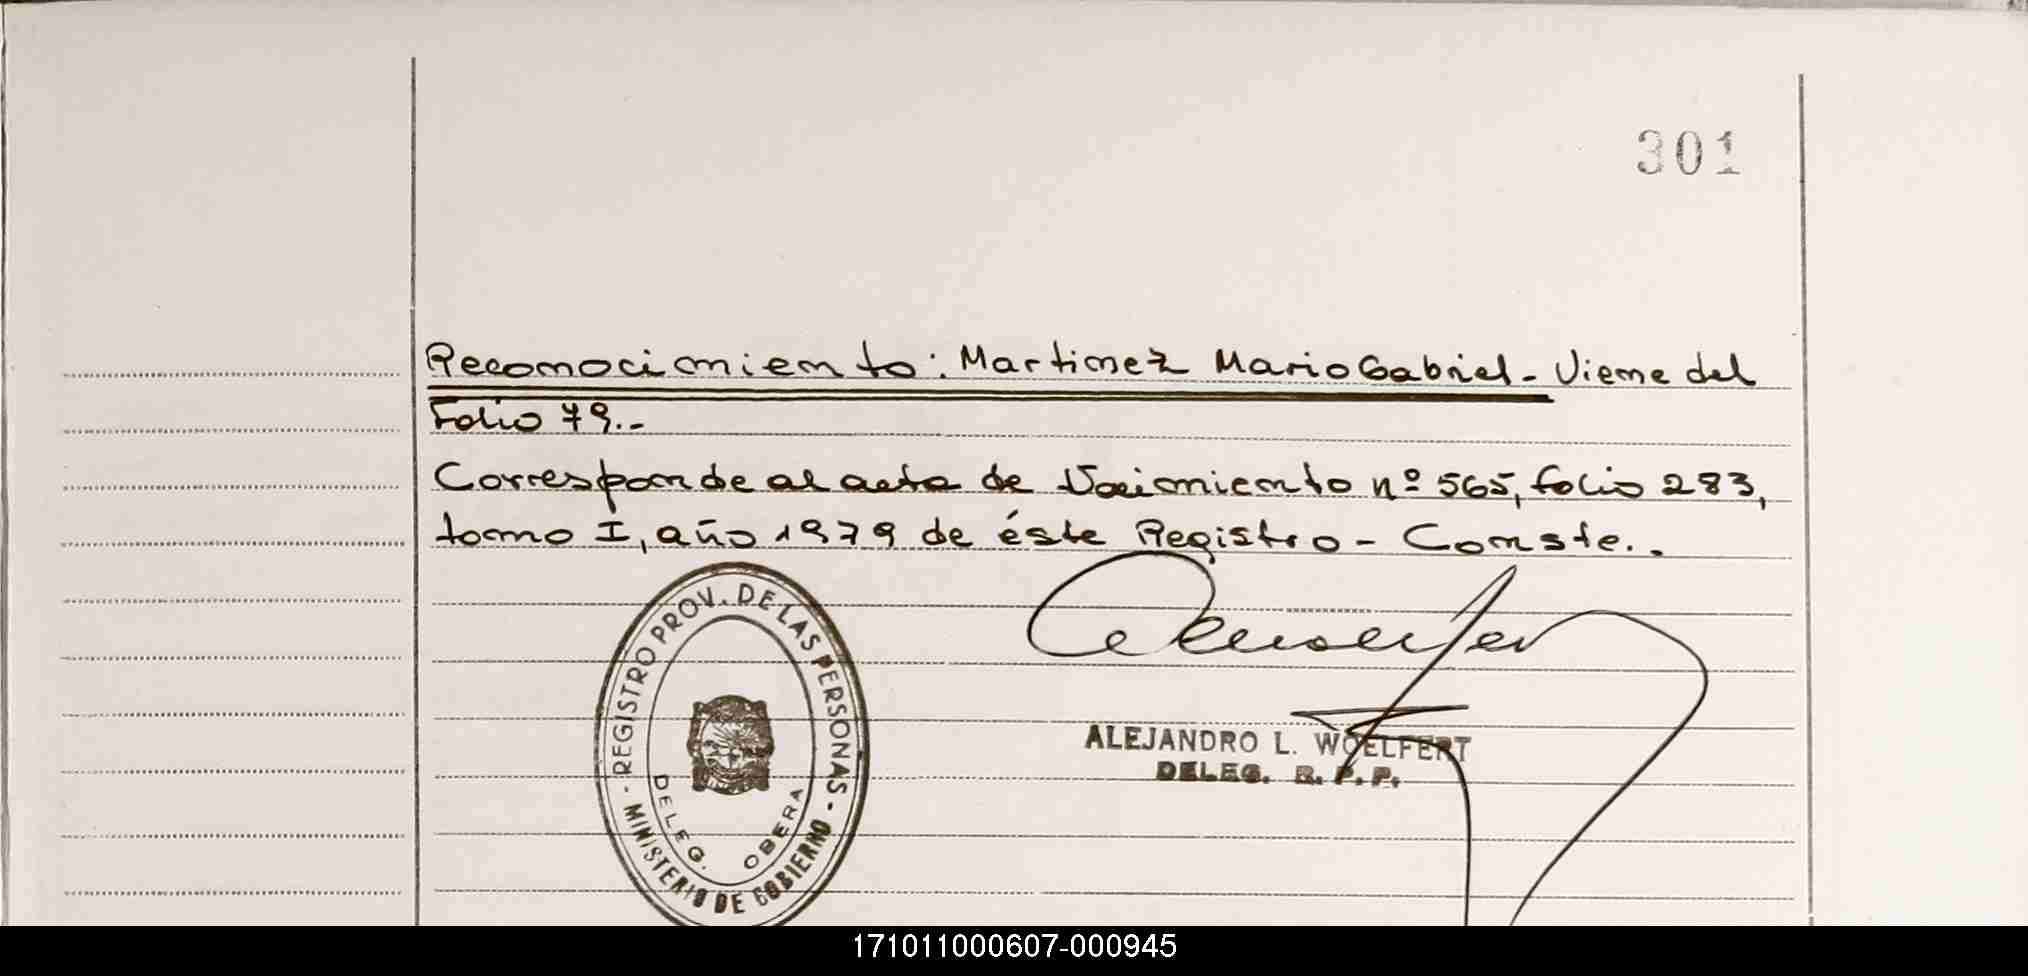 301
Reconocimiento: Martinez Mario Gabriel - Viene del
Folio 79.-
Corresponde al acta de Nacimiento nº 565, folio 283,
tomo I, año 1979 de éste Registro - Conste..
REGISTRO PROV. DE LAS PERSONAS -
MINISTERIO DE GOBIERNO -
DELEG. OBERA
ALEJANDRO L. WOELFERT
DELEG. R. P. P.
171011000607-000945